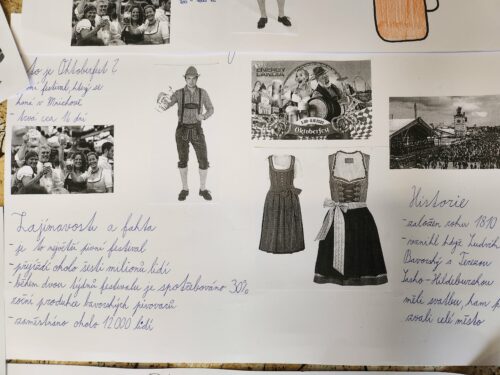 to je Oktoberfest?
ní festival, který se
koná v Mnichově
- trvá cca 16 dní
ENERGY
LANDIA
Oktoberfest
Zajímavosti a fakta
- je to největší pivní festival
- přijíždí okolo šesti milionů lidí
- během dvou týdnů festivalu je spotřebováno 30%
roční produkce bavorských pivovarů
- zaměstnáno okolo 12 000 lidí
Historie
- založen roku 1810
- vznikl když Ludvík
Bavorský a Terezou
Sasko-Hildeburskou
měli svatbu, kam p
zvali celé město